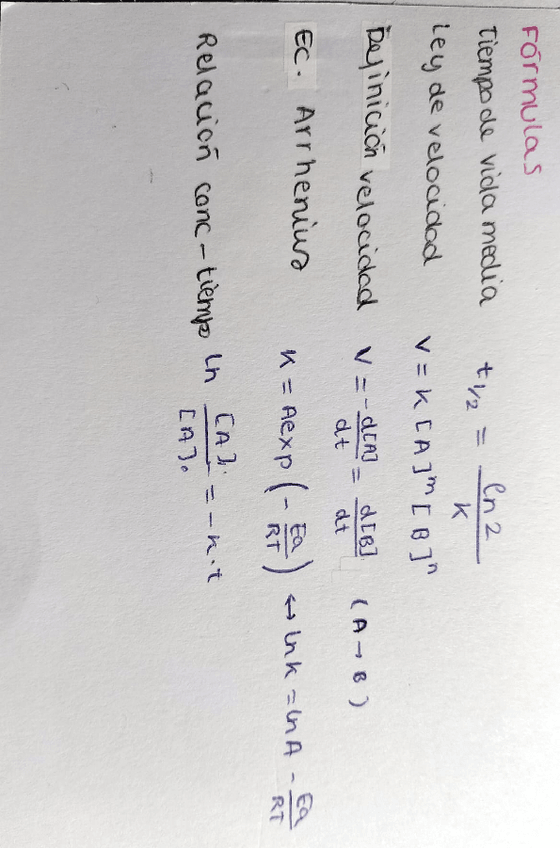 FÓRMULAS
Tiempo de vida media t1/2 = ln2/k
Ley de velocidad v = k [A]^m [B]^n
Definición velocidad v = -d[A]/dt = d[B]/dt (A → B)
Ec. Arrhenius k = Aexp(-Ea/RT) ↔ lnk = lnA - Ea/RT
Relación conc-tiempo ln [A]/[A]₀ = -k·t